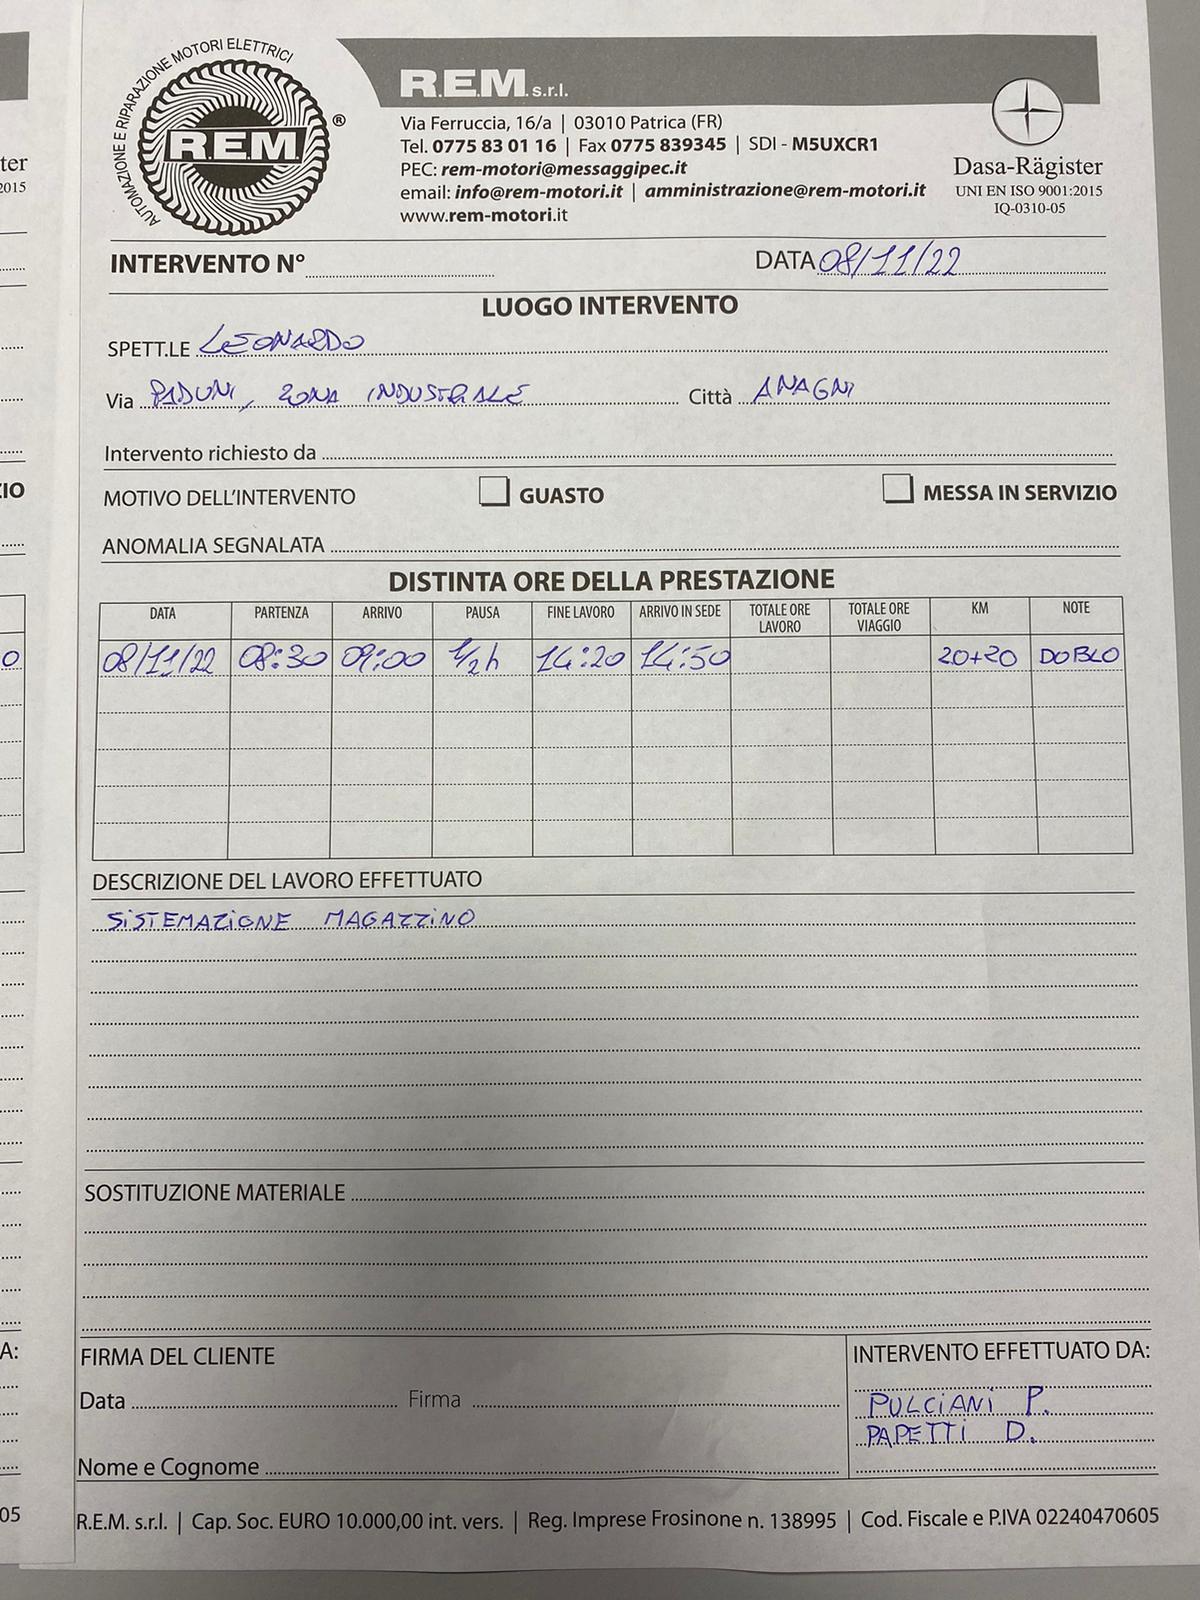 AUTOMAZIONE E RIPARAZIONE MOTORI ELETTRICI
R.E.M. ®
R.E.M. s.r.l.
Via Ferruccia, 16/a | 03010 Patrica (FR)
Tel. 0775 83 01 16 | Fax 0775 839345 | SDI - M5UXCR1
PEC: rem-motori@messaggipec.it
email: info@rem-motori.it | amministrazione@rem-motori.it
www.rem-motori.it
Dasa-Rägister
UNI EN ISO 9001:2015
IQ-0310-05
INTERVENTO N° DATA 08/11/22
LUOGO INTERVENTO
SPETT.LE LEONARDO
Via PADUNI, ZONA INDUSTRIALE Città ANAGNI
Intervento richiesto da
MOTIVO DELL'INTERVENTO GUASTO MESSA IN SERVIZIO
ANOMALIA SEGNALATA
DISTINTA ORE DELLA PRESTAZIONE
DATA PARTENZA ARRIVO PAUSA FINE LAVORO ARRIVO IN SEDE TOTALE ORE LAVORO TOTALE ORE VIAGGIO KM NOTE
08/11/22 08:30 09:00 1/2h 14:20 14:50 20+20 DOBLO
DESCRIZIONE DEL LAVORO EFFETTUATO
SISTEMAZIONE MAGAZZINO
SOSTITUZIONE MATERIALE
FIRMA DEL CLIENTE
Data Firma
Nome e Cognome
INTERVENTO EFFETTUATO DA:
PULCIANI P.
PAPETTI D.
R.E.M. s.r.l. | Cap. Soc. EURO 10.000,00 int. vers. | Reg. Imprese Frosinone n. 138995 | Cod. Fiscale e P.IVA 02240470605